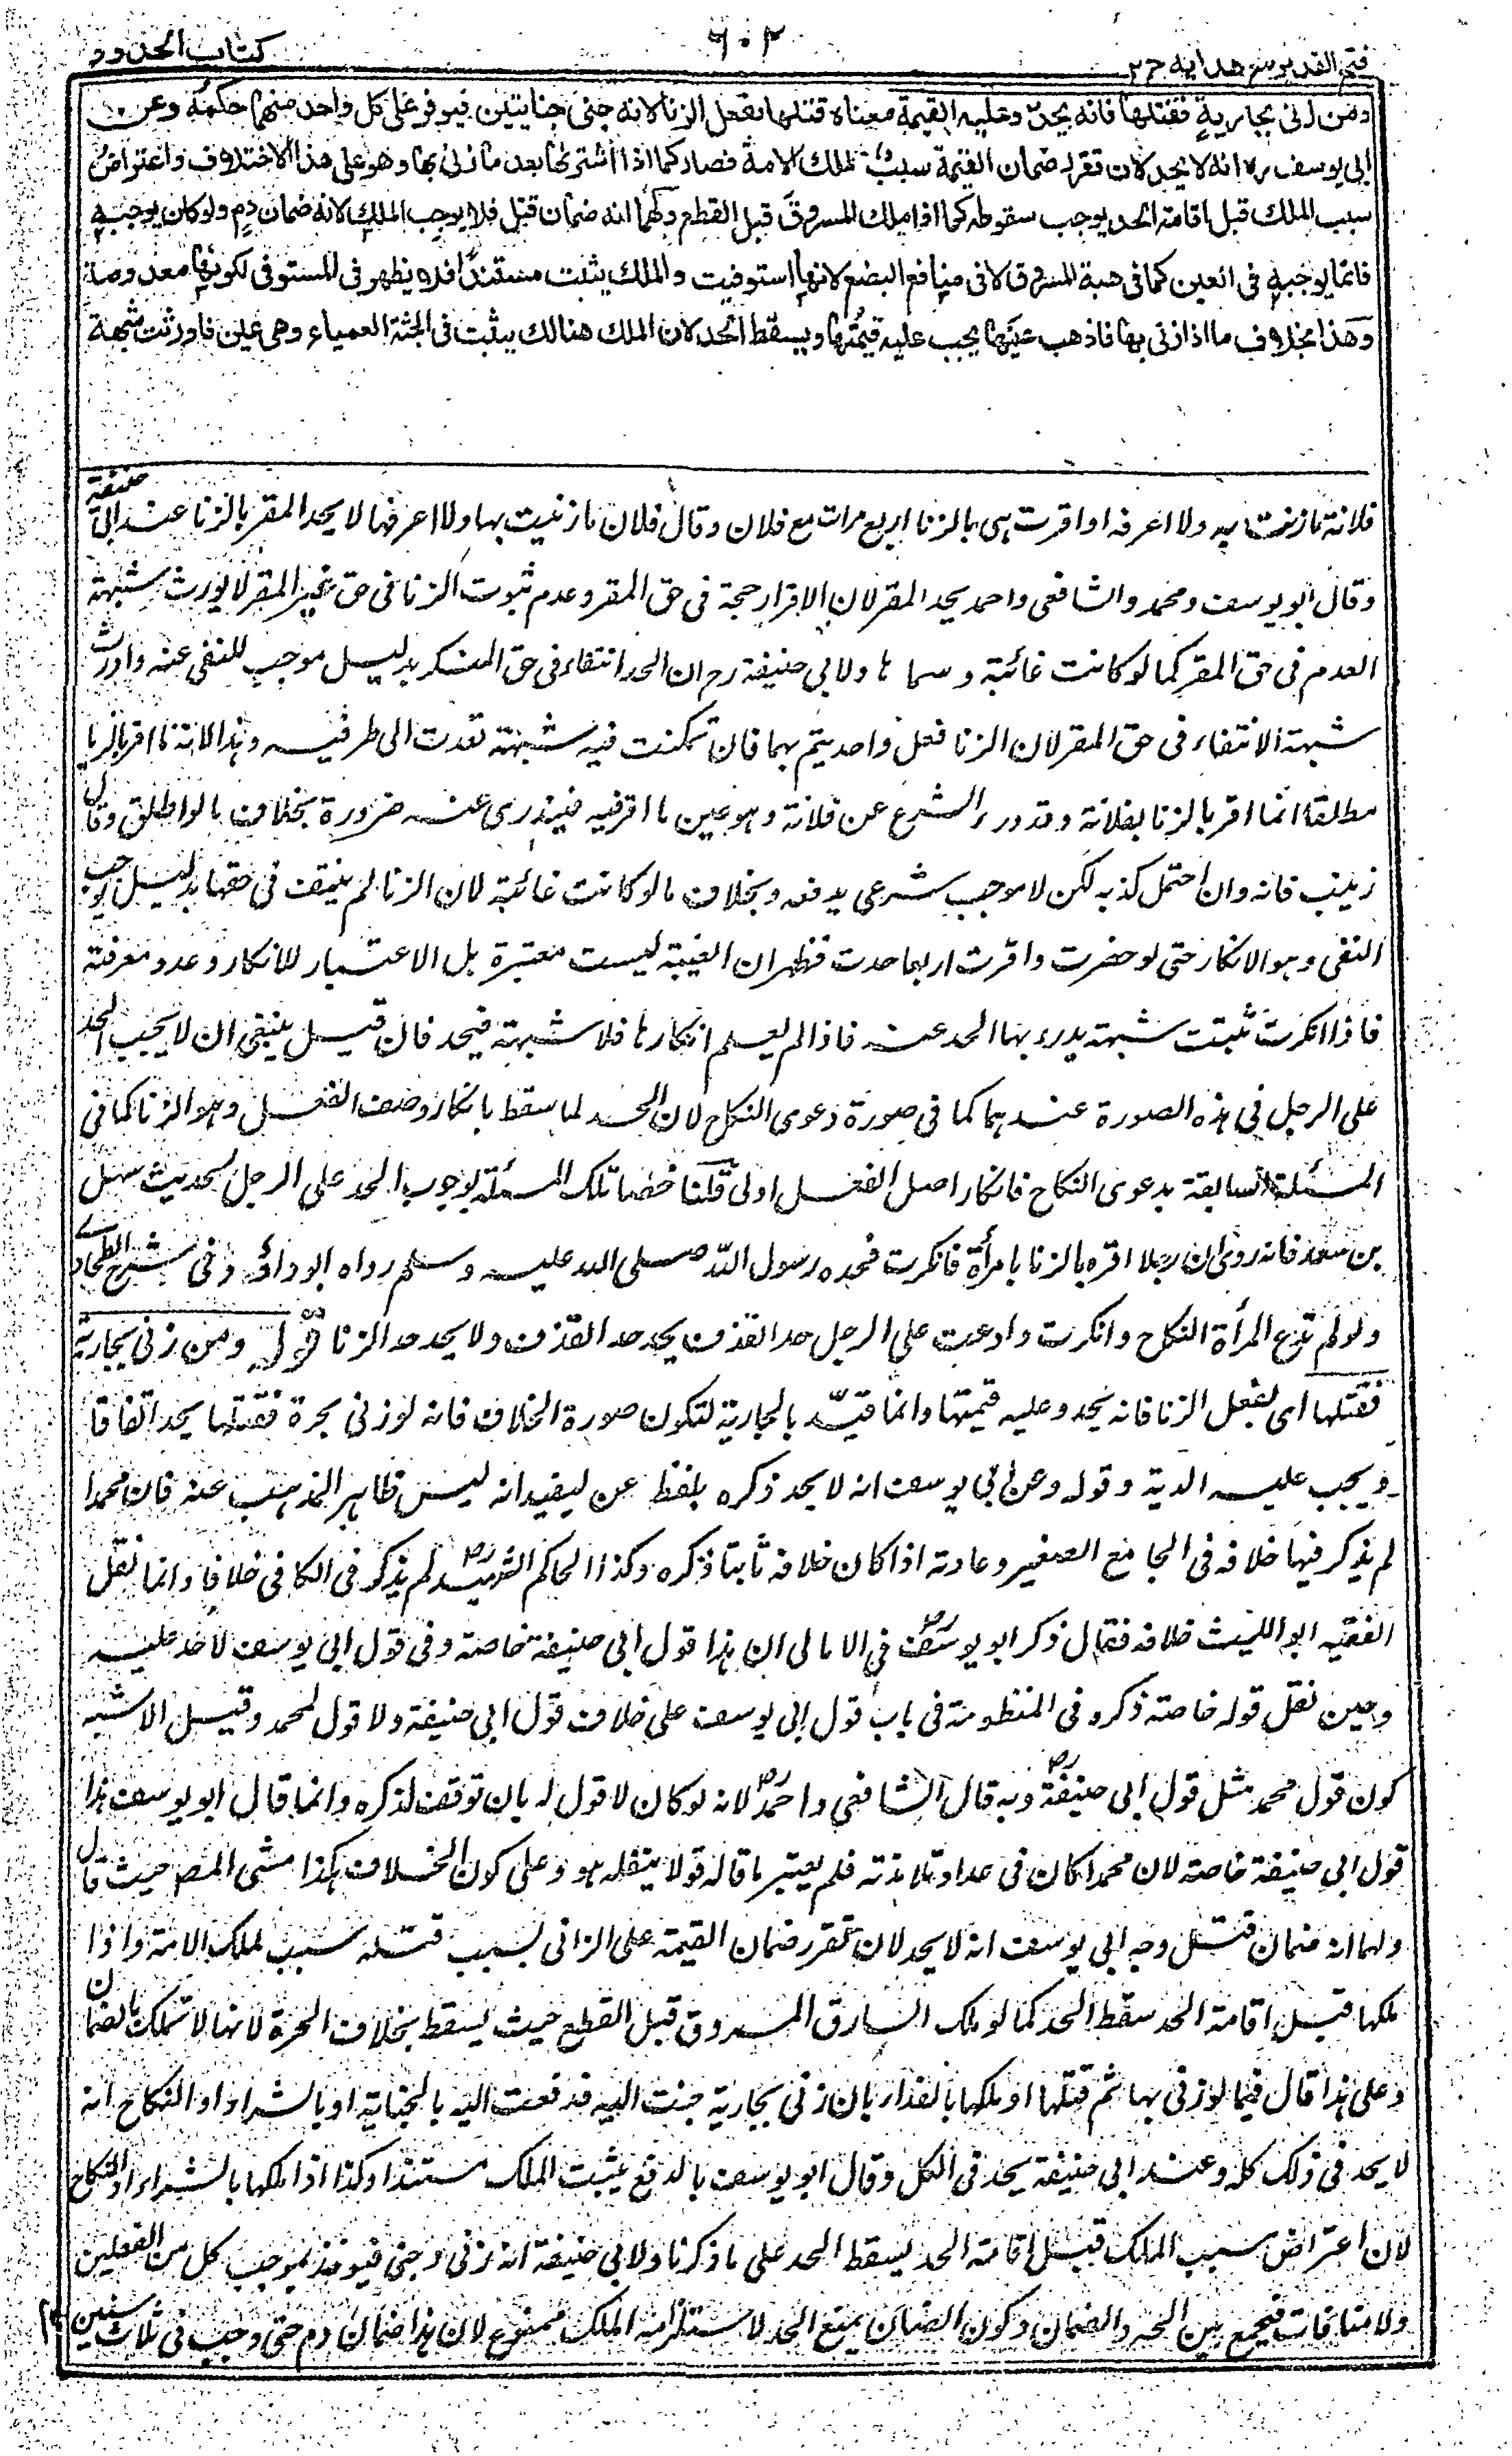 فتح القدير مع هدايه ج٢
٦٠٢
كتاب الحدود
ومن زنى بجارية فقتلها فانه يحد وعليه القيمة معناه قتلها بفعل الزنا لانه جنى جنايتين فيوفر على كل واحد منهما حكمه وعن
ابى يوسف ره انه لا يحد لان تقرر ضمان القيمة سبب لملك الامة فصار كما اذا اشترىها بعد ما زنى بها وهو على هذا الاختلاف واعتراض
سبب الملك قبل اقامة الحد يوجب سقوطه كما اذا ملك المسروق قبل القطع ولهما انه ضمان قتل فلا يوجب الملك لانه ضمان دم ولو كان يوجبه
فانما يوجبه فى العين كما فى هبة المسروق لا فى منافع البضع لانها استوفيت والملك يثبت مستندا فلا يظهر فى المستوفى لكونها معدومة
وهذا بخلاف ما اذا زنى بها فاذهب عينها يجب عليه قيمتها ويسقط الحد لان الملك هنالك يثبت فى الجثة العمياء وهى عين فاورثت شبهة
فلانة ما زنيت به ولا اعرفه او اقرت هى بالزنا اربع مرات مع فلان وقال فلان ما زنيت بها ولا اعرفها لا يحد المقر بالزنا عند ابى حنيفة
وقال ابو يوسف ومحمد والشافعى واحمد يحد المقر لان الاقرار حجة فى حق المقر وعدم ثبوت الزنا فى حق غير المقر لا يورث شبهة
العدم فى حق المقر كما لو كانت غائبة وسماها ولابى حنيفة رح ان الحد انتفاء فى حق المنكر بدليل موجب للنفى عنه واورث
شبهة الانتفاء فى حق المقر لان الزنا فعل واحد يتم بهما فان تمكنت فيه شبهة تعدت الى طرفيه وهذا لانه ما اقر بالزنا
مطلقا انما اقر بالزنا بفلانة وقد درء الشرع عن فلانة وهو عين ما اقر فيه فيندرى عنه ضرورة بخلاف ما لو اطلق وقال
زينب فانه وان احتمل كذبه لكن لا موجب شرعى يدفعه وبخلاف ما لو كانت غائبة لان الزنا لم ينتف فى حقها بدليل يوجب
النفى وهو الانكار حتى لو حضرت واقرت اربعا حدت فظهر ان الغيبة ليست معتبرة بل الاعتبار للانكار وعدم معرفته
فاذا انكرت ثبتت شبهة يدرء بها الحد عنه فاذا لم يعلم انكارها فلا شبهة فيحد فان قيل ينبغى ان لا يجب الحد
على الرجل فى هذه الصورة عندهما كما فى صورة دعوى النكاح لان الحد لما سقط بانكار وصف الفعل وهو الزنا كما فى
المسئلة السابقة بدعوى النكاح فانكار اصل الفعل اولى قلنا خصا تلك المسئلة بوجوب الحد على الرجل لحديث سهل
بن سعد فانه روى ان رجلا اقر بالزنا بامرأة فانكرت فحده رسول الله صلى الله عليه وسلم رواه ابو داؤد وفى شرح الطحاوى
ولو لم تدع المرأة النكاح وانكرت وادعت على الرجل حد القذف يحد حد القذف ولا يحد حد الزنا قوله ومن زنى بجارية
فقتلها اى بفعل الزنا فانه يحد وعليه قيمتها وانما قيد بالجارية لتكون صورة الخلاف فانه لو زنى بحرة فقتلها يحد اتفاقا
ويجب عليه الدية وقوله وعن ابى يوسف انه لا يحد ذكره بلفظ عن ليفيد انه ليس ظاهر المذهب عنه فان محمدا
لم يذكر فيها خلافه فى الجامع الصغير وعادته اذا كان خلافه ثابتا ذكره وكذا الحاكم الشهيد رح لم يذكر فى الكافى خلافا وانما نقل
الفقيه ابو الليث خلافه فقال ذكر ابو يوسف رح فى الامالى ان هذا قول ابى حنيفة خاصة وفى قول ابى يوسف لا حد عليه
وحين نقل قوله خاصة ذكره فى المنظومة فى باب قول ابى يوسف على خلاف قول ابى حنيفة ولا قول لمحمد وقيل الاشبه
كون قول محمد مثل قول ابى حنيفة رح وبه قال الشافعى واحمد رح لانه لو كان لا قول له بان توقف لذكره وانما قال ابو يوسف هذا
قول ابى حنيفة خاصة لان محمدا كان فى عداد تلامذته فلم يعتبر ما قاله قولا ينقله هو وعلى كون الخلاف هكذا مشى المص حيث قال
ولهما انه ضمان قتل وجه ابى يوسف انه لا يحد لان تقرر ضمان القيمة على الزانى بسبب قتله سبب لملك الامة واذا
ملكها قبل اقامة الحد سقط الحد كما لو ملك السارق المسروق قبل القطع حيث يسقط بخلاف الحرة لانها لا تملك بالضمان
وعلى هذا قال فيما لو زنى بها ثم قتلها او ملكها بالفداء بان زنى بجارية جنت اليه فدفعت اليه بالجناية او بالشراء او النكاح انه
لا يحد فى ذلك كله وعند ابى حنيفة يحد فى الكل وقال ابو يوسف بالدفع يثبت الملك مستندا وكذا اذا ملكها بالشراء او النكاح
لان اعتراض سبب الملك قبل اقامة الحد يسقط الحد على ما ذكرنا ولابى حنيفة انه زنى وجنى فيوخذ بموجب كل من الفعلين
ولا منافات فيجمع بين الحد والضمان وكون الضمان يمنع الحد لاستلزامه الملك ممنوع لان هذا ضمان دم حتى وجب فى ثلاث سنين